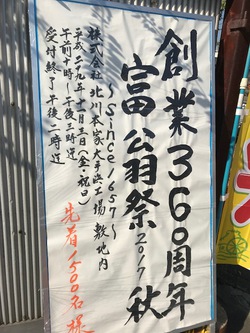 創業360周年
富翁祭2017秋
～Since1657～
株式会社 北川本家 大手蔵工場 敷地内
平成二九年 十一月三日(金・祝日)
午前十時～午後三時迄
受付終了 午後二時迄
先着1500名様